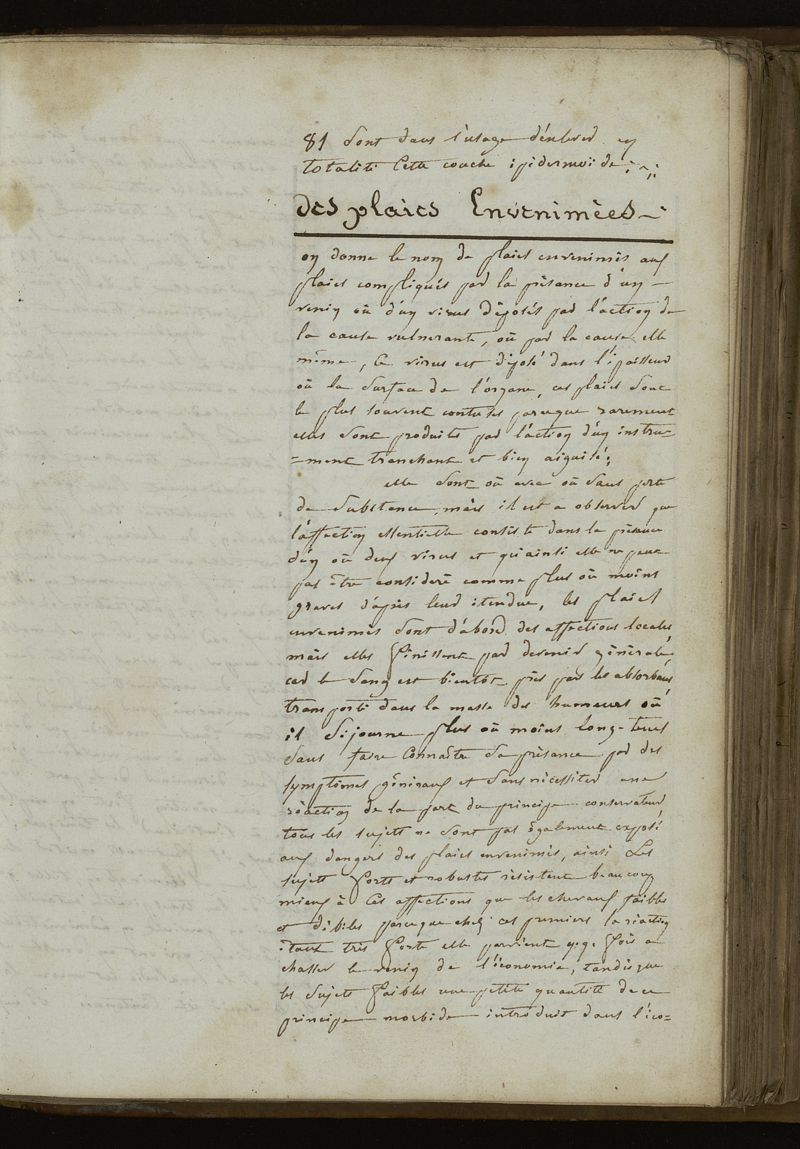 81 sont dans l'usage d'énlever en
totalité cette couche épidermoïde
des plaies Envenimées
on donne le nom de plaies envenimés aux
plaies compliqués par la présance d'un
venin où d'un virus déposés par l'action de
la cause vulnerante, où par la cause elle
même, ce virus est déposé dans l'épaisseur
où la surface de l'organe, ces plaies sont
le plus souvent contuses parceque rarement
elles sont produits par l'action d'un instru=
=ment tranchant et bien aiguisé;
elle sont où avec où sans perte
de substance, mais il est a observer que
l'affection essentielle consiste dans la présance
d'un où deux virus et qu'ainsi elle ne peut
pas être consideré comme plus où moins
graves d'après leur étendue, les plaies
envenimés sont d'abord des affections locales
mais elles finissent par devenir générale
car le sang est bientôt pris par les absorbans
transporté dans la masse des humeurs où
il séjourne plus où moins long-tems
sans faire connaître sa présance par des
symptômes généraux et sans nécessiter une
réaction de la part du principe conservateur
tous les sujets ne sont pas également exposé
aux dangers des plaies envenimés, ainsi les
sujets forts et robustes résistent beaucoup
mieux à ces affections que les chevaux faibles
et débiles parceque chez ces premiers la réaction
étant très forte elle parvient qqe fois a
chasser le venin de l'économie, tandisque
les sujets faibles une petite quantité de ce
principe morbide introduit dans l'éco=